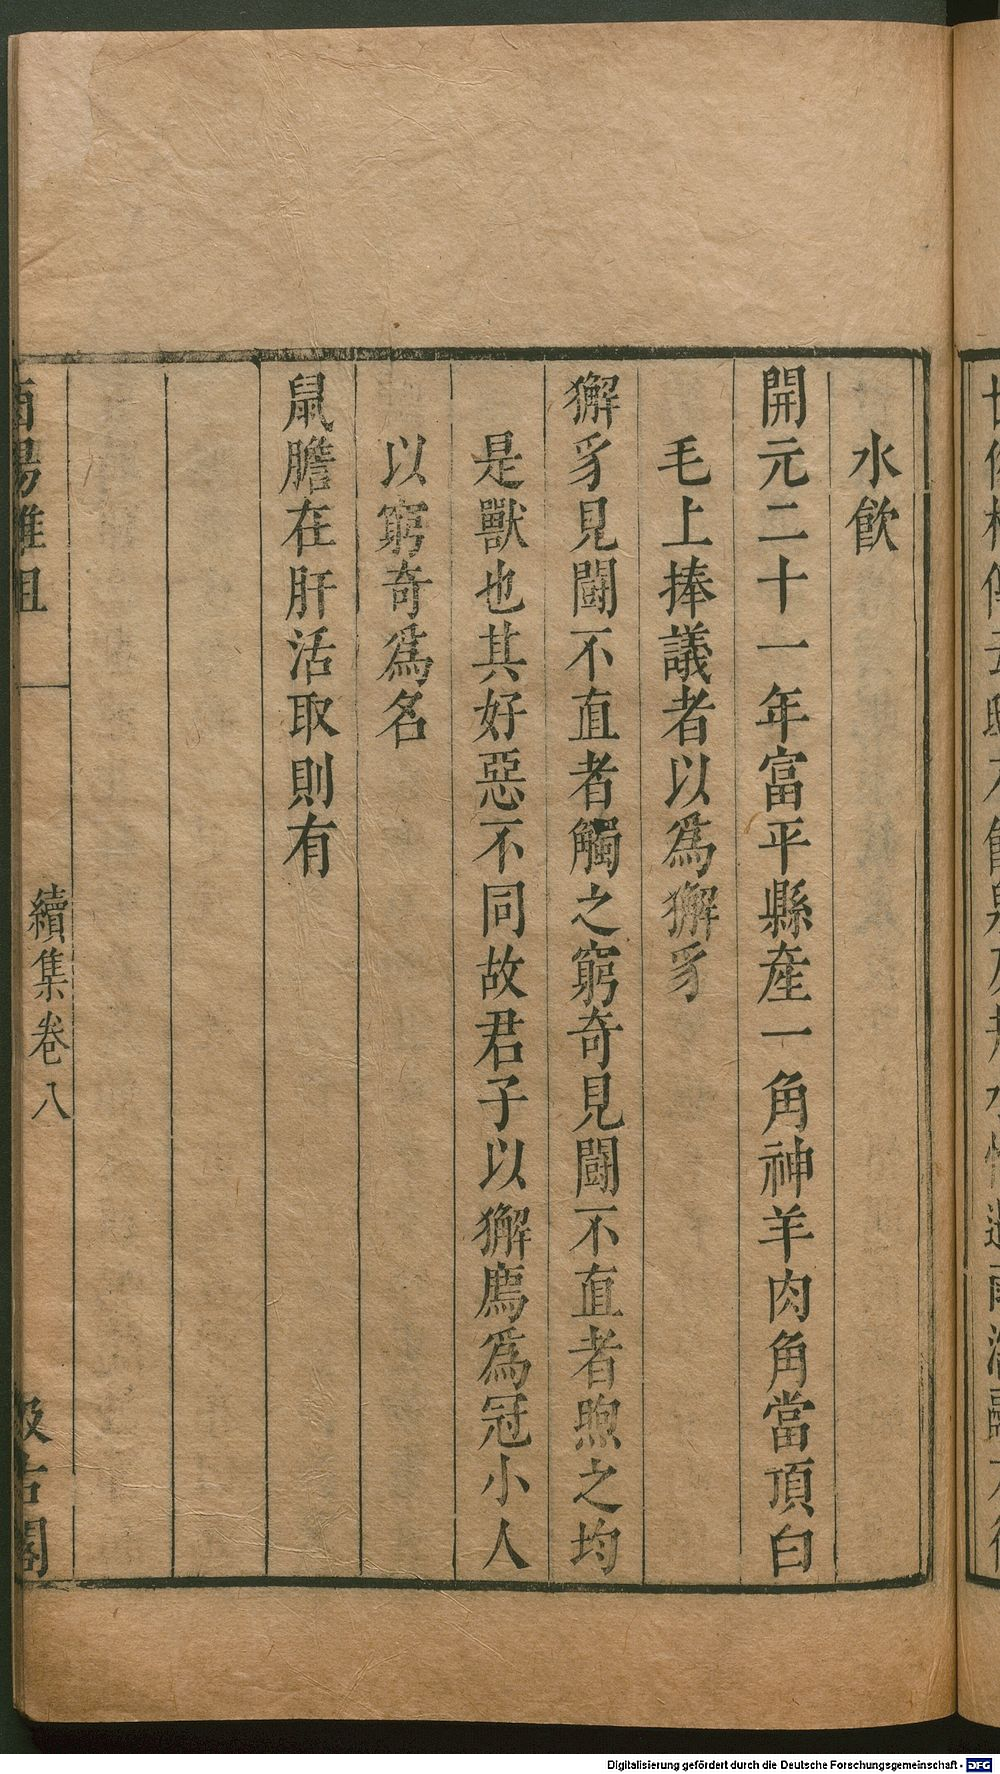 水飲
開元二十一年富平縣產一角神羊肉角當頂白
毛上捧議者以爲獬豸
獬豸見鬬不直者觸之窮奇見鬬不直者煦之均
是獸也其好惡不同故君子以獬廌爲冠小人
以窮奇爲名
鼠膽在肝活取則有
酉陽雜俎
續集卷八
汲古閣
Digitalisierung gefördert durch die Deutsche Forschungsgemeinschaft - DFG